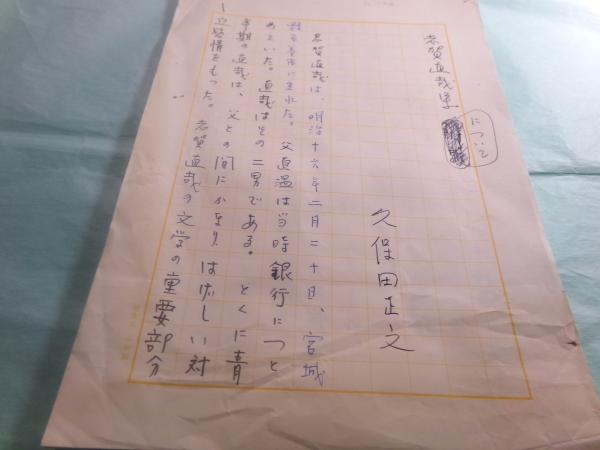 志賀直哉
について
久保田正文
志賀直哉は、明治十六年二月二十日、宮城
に生れた。父直温は当時銀行につと
めていた。直哉はその二男である。とくに青
年期の直哉は、父との間にかなりはげしい対
立感情をもった。志賀直哉の文学の重要部分